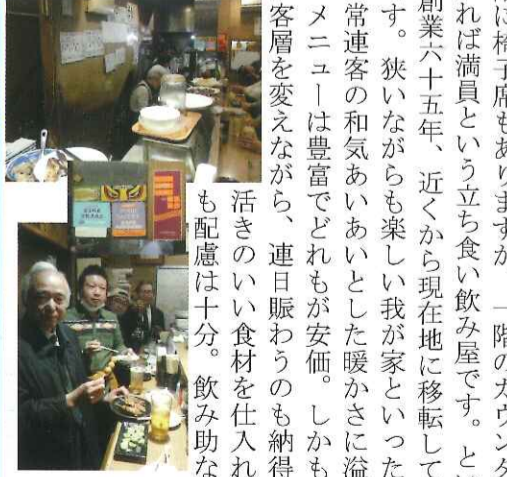 に椅子席もありますが、一階のカウンタ
れば満員という立ち食い飲み屋です。と
創業六十五年、近くから現在地に移転して
す。狭いながらも楽しい我が家といった
常連客の和気あいあいとした暖かさに溢
メニューは豊富でどれもが安価。しかも
客層を変えながら、連日賑わうのも納得
活きのいい食材を仕入れ
も配慮は十分。飲み助な